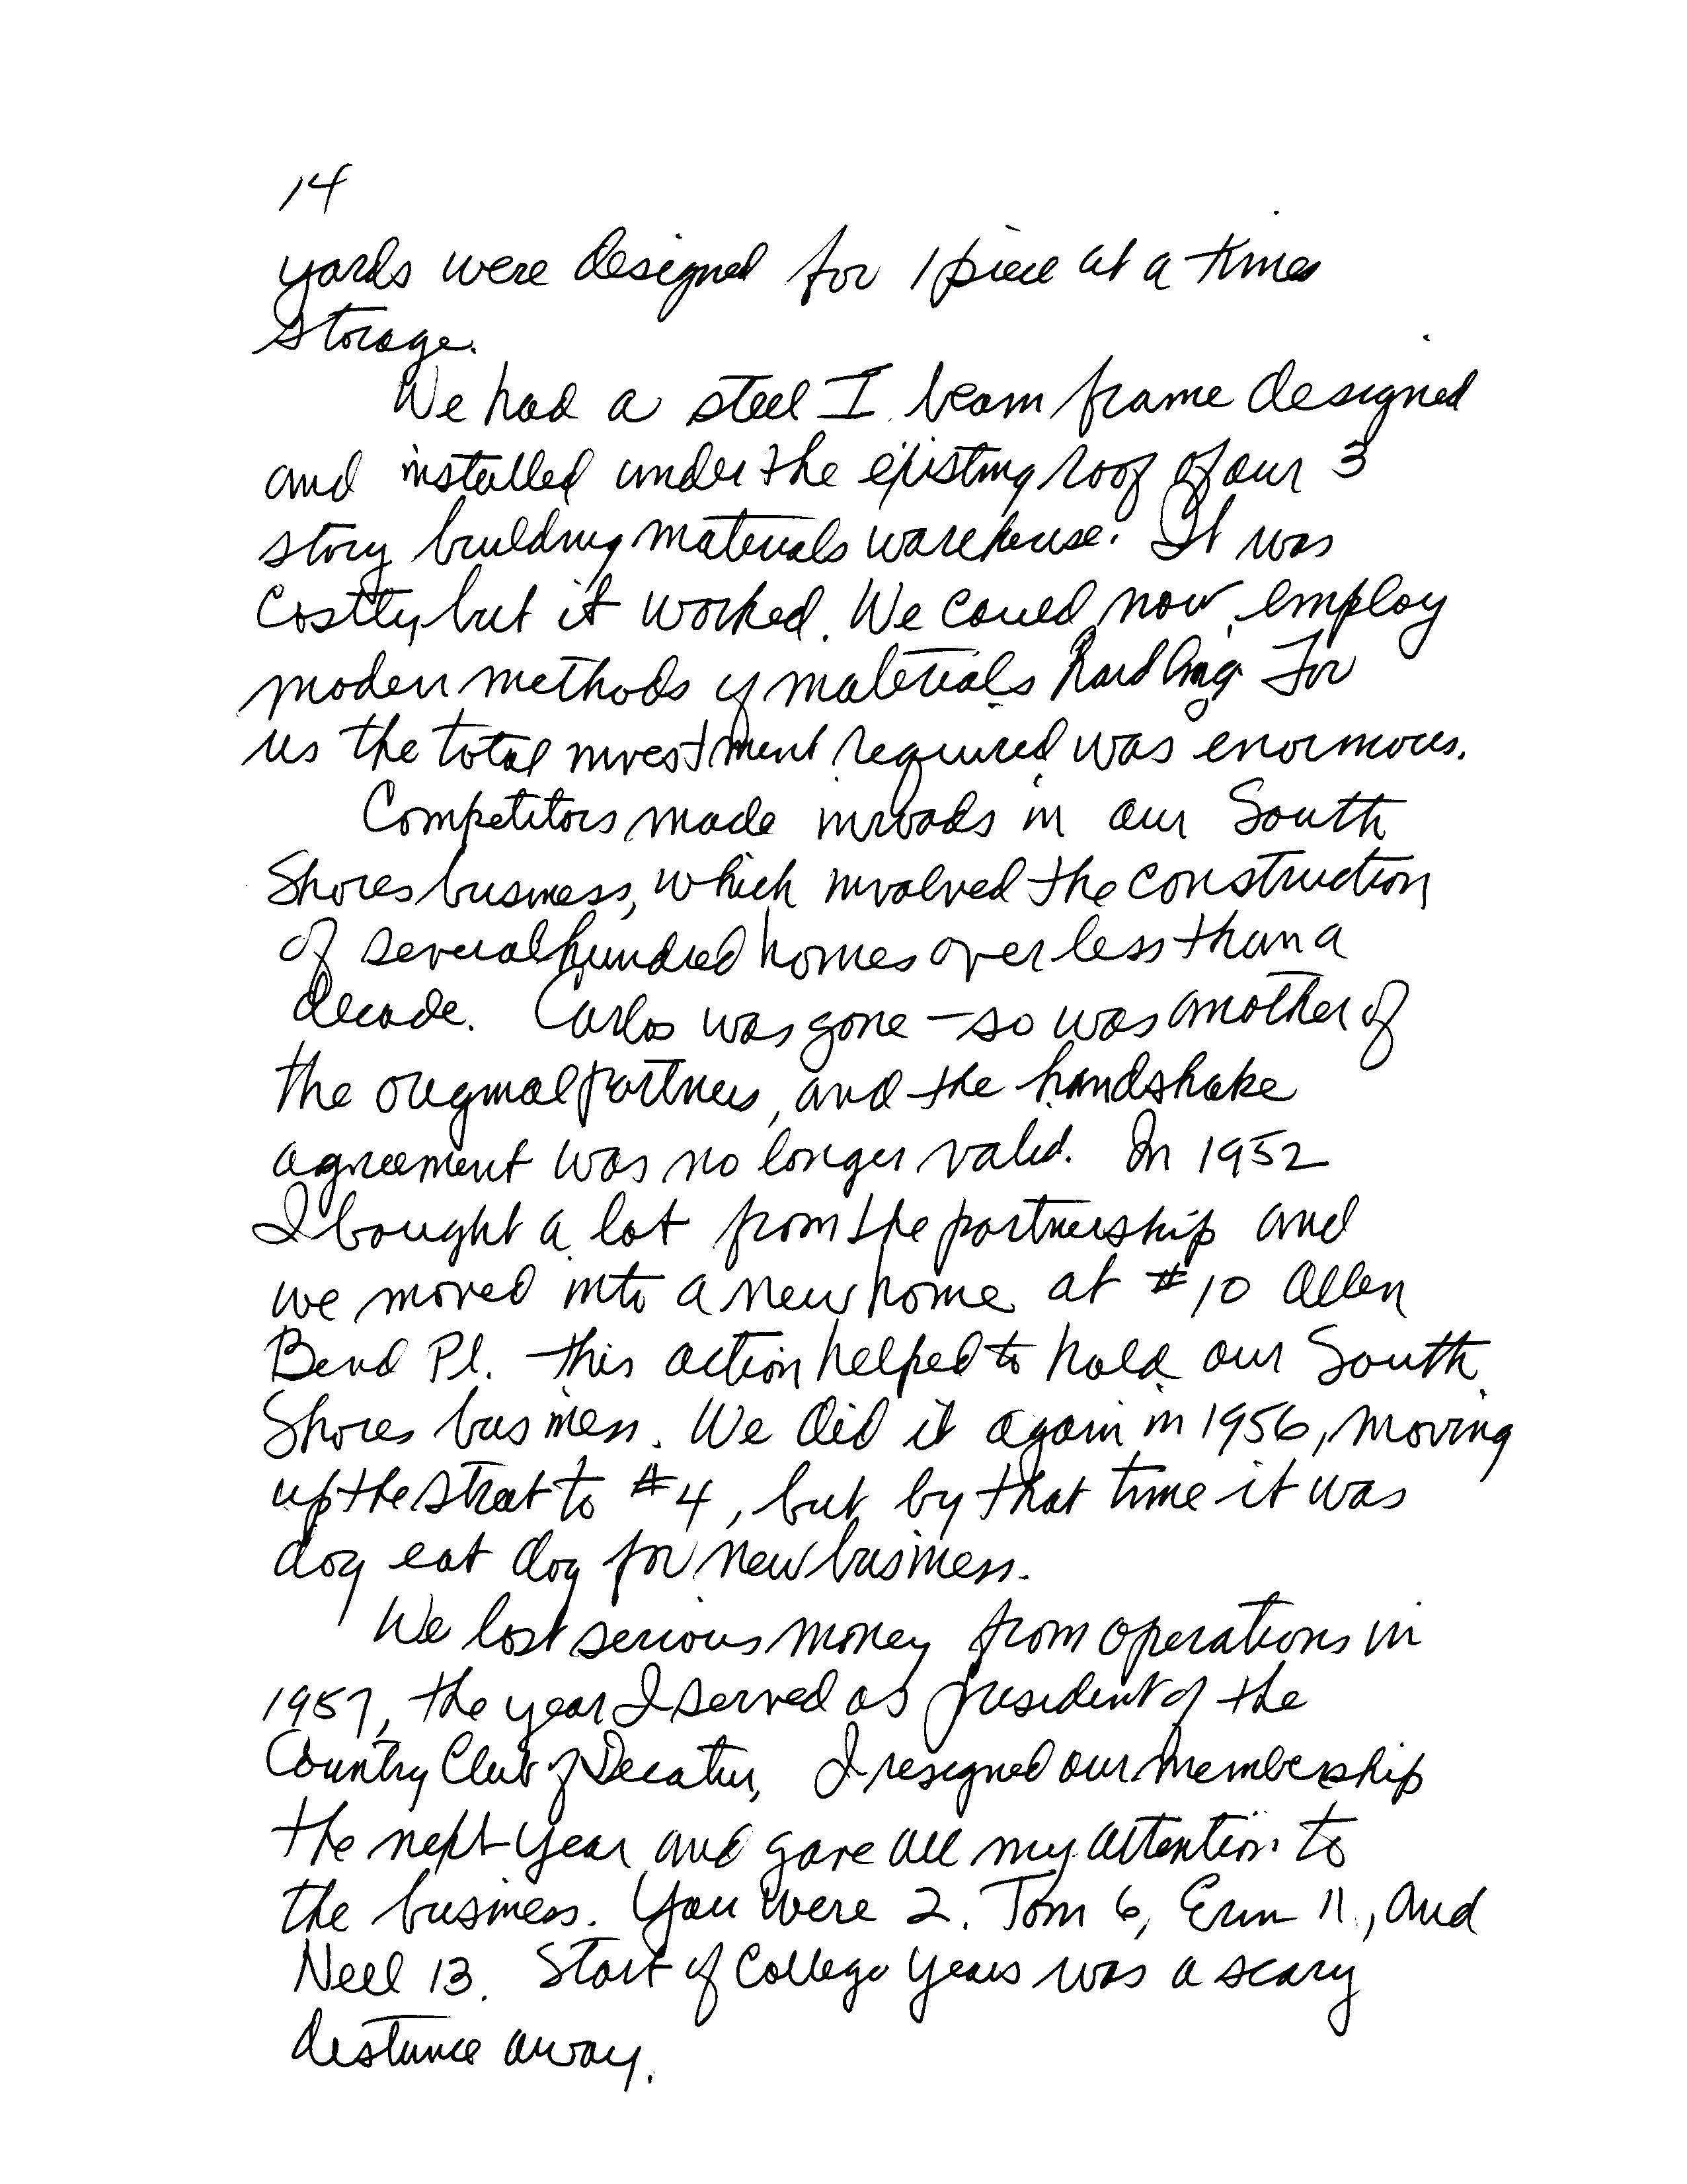 14
yards were designed for 1 piece at a times
storage.
We had a steel I beam frame designed
and installed under the existing roof of our 3
story building materials warehouse. It was
costly but it worked. We could now employ
modern methods of materials handling. For
us the total investment required was enormous.
Competitors made inroads in our South
Shores business, which involved the construction
of several hundred homes over less than a
decade. Carlos was gone – so was another of
the original partners, and the handshake
agreement was no longer valid. In 1952
I bought a lot from the partnership and
we moved into a new home at #10 Allen
Bend Pl. This action helped to hold our South
Shores business. We did it again in 1956, moving
up the street to #4, but by that time it was
dog eat dog for new business.
We lost serious money from operations in
1957, the year I served as president of the
Country Club of Decatur, I resigned our membership
the next year and gave all my attention to
the business. You were 2. Tom 6, Erin 11, and
Neel 13. Start of College years was a scary
distance away.